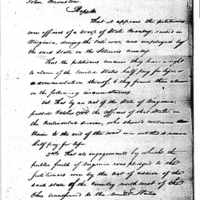 John Thruston
Report
That it appears the petitioners
was officers of a troop of State Cavalry, raised in
Virginia, during the late war, was employed by
the said State in the Illinois Country
That the petitioners conceive they has a right
to claim of the United States half pay for life, or
commutation thereof; & they found their claims
on the following circumstances
1st That by an act of the State of Virginia,
passed October 1780 the officers of the State in
the Continental Service, who should continue
therein to the end of the war are entitled to
half pay for life.
2nd That all engagements by which the
public faith of Virginia was pledged to the
petitioners were by the act of cession of the
said State of the Country north west of the
Ohio transferred to the United States